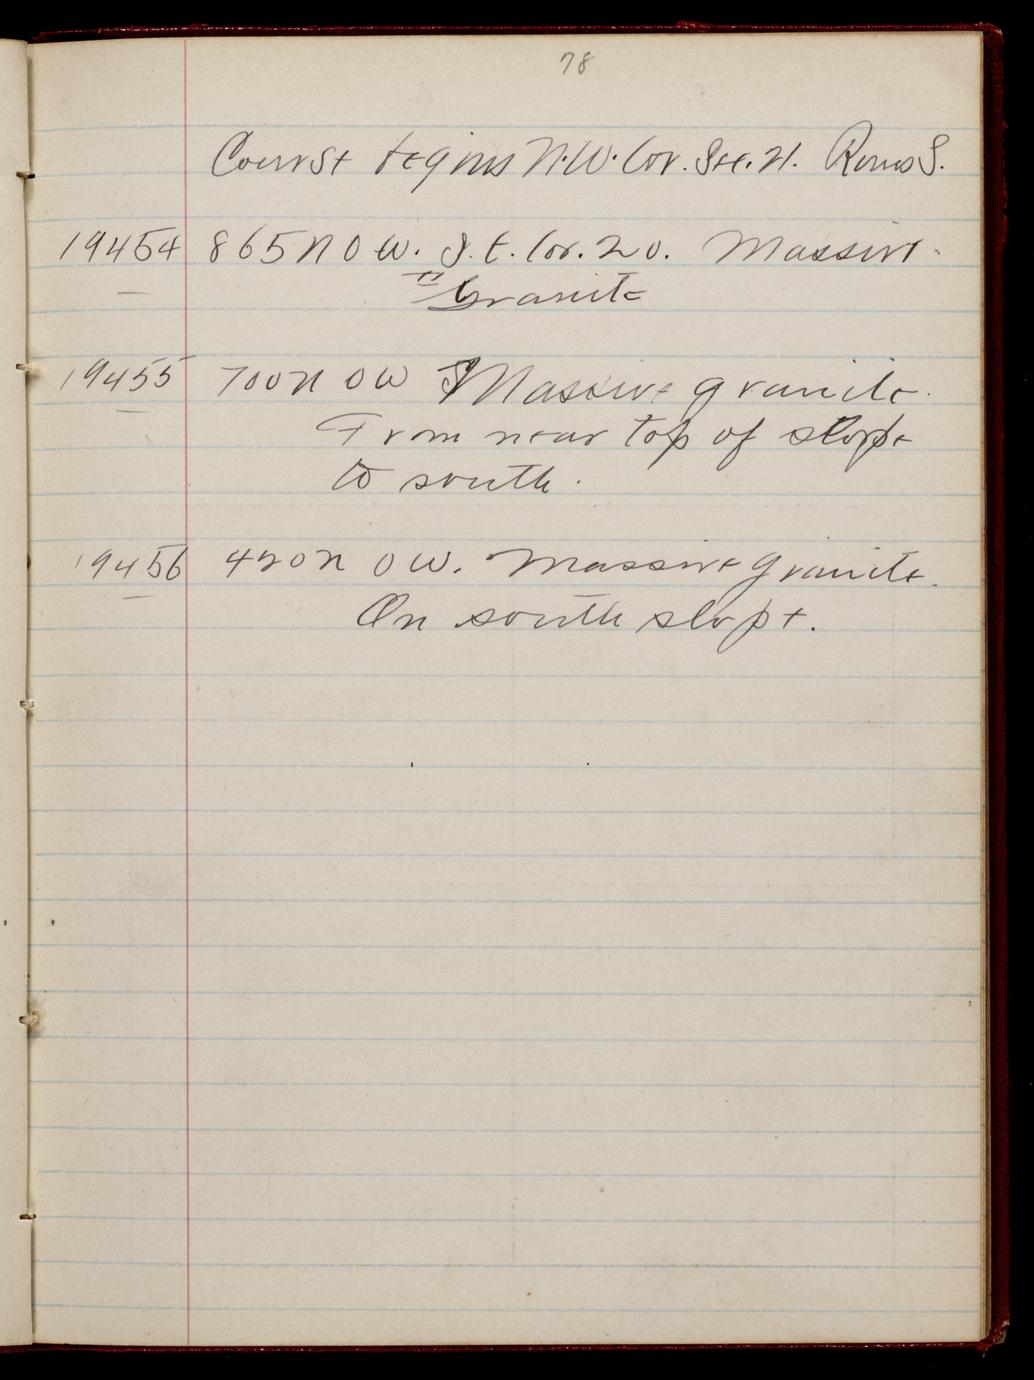 78
Course begins N.W. Cor. Sec. 21. Runs S.
19454 865 N 0 W. S.E. Cor. 20. Massive
Granite
19455 700 N 0 W Massive granite.
From near top of slope
to south.
19456 420 N 0 W. Massive granite.
On south slope.